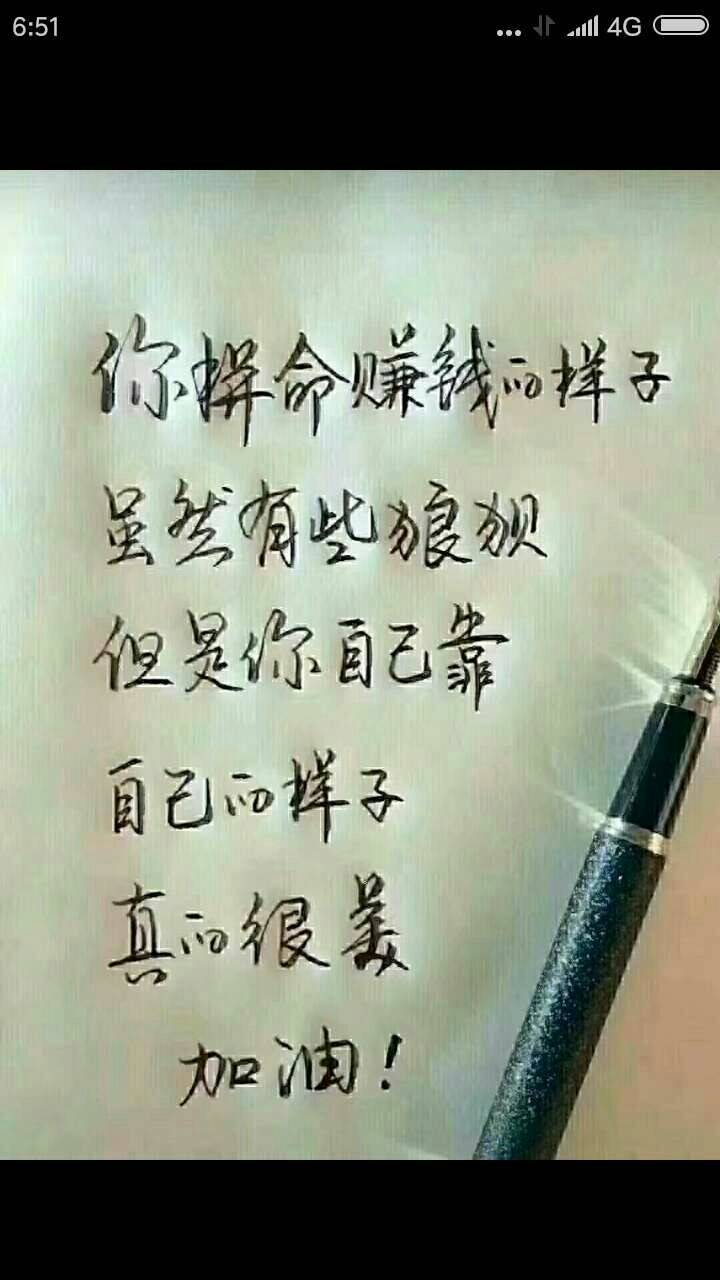 6:51
4G
你拼命赚钱的样子
虽然有些狼狈
但是你自己靠
自己的样子
真的很美
加油！